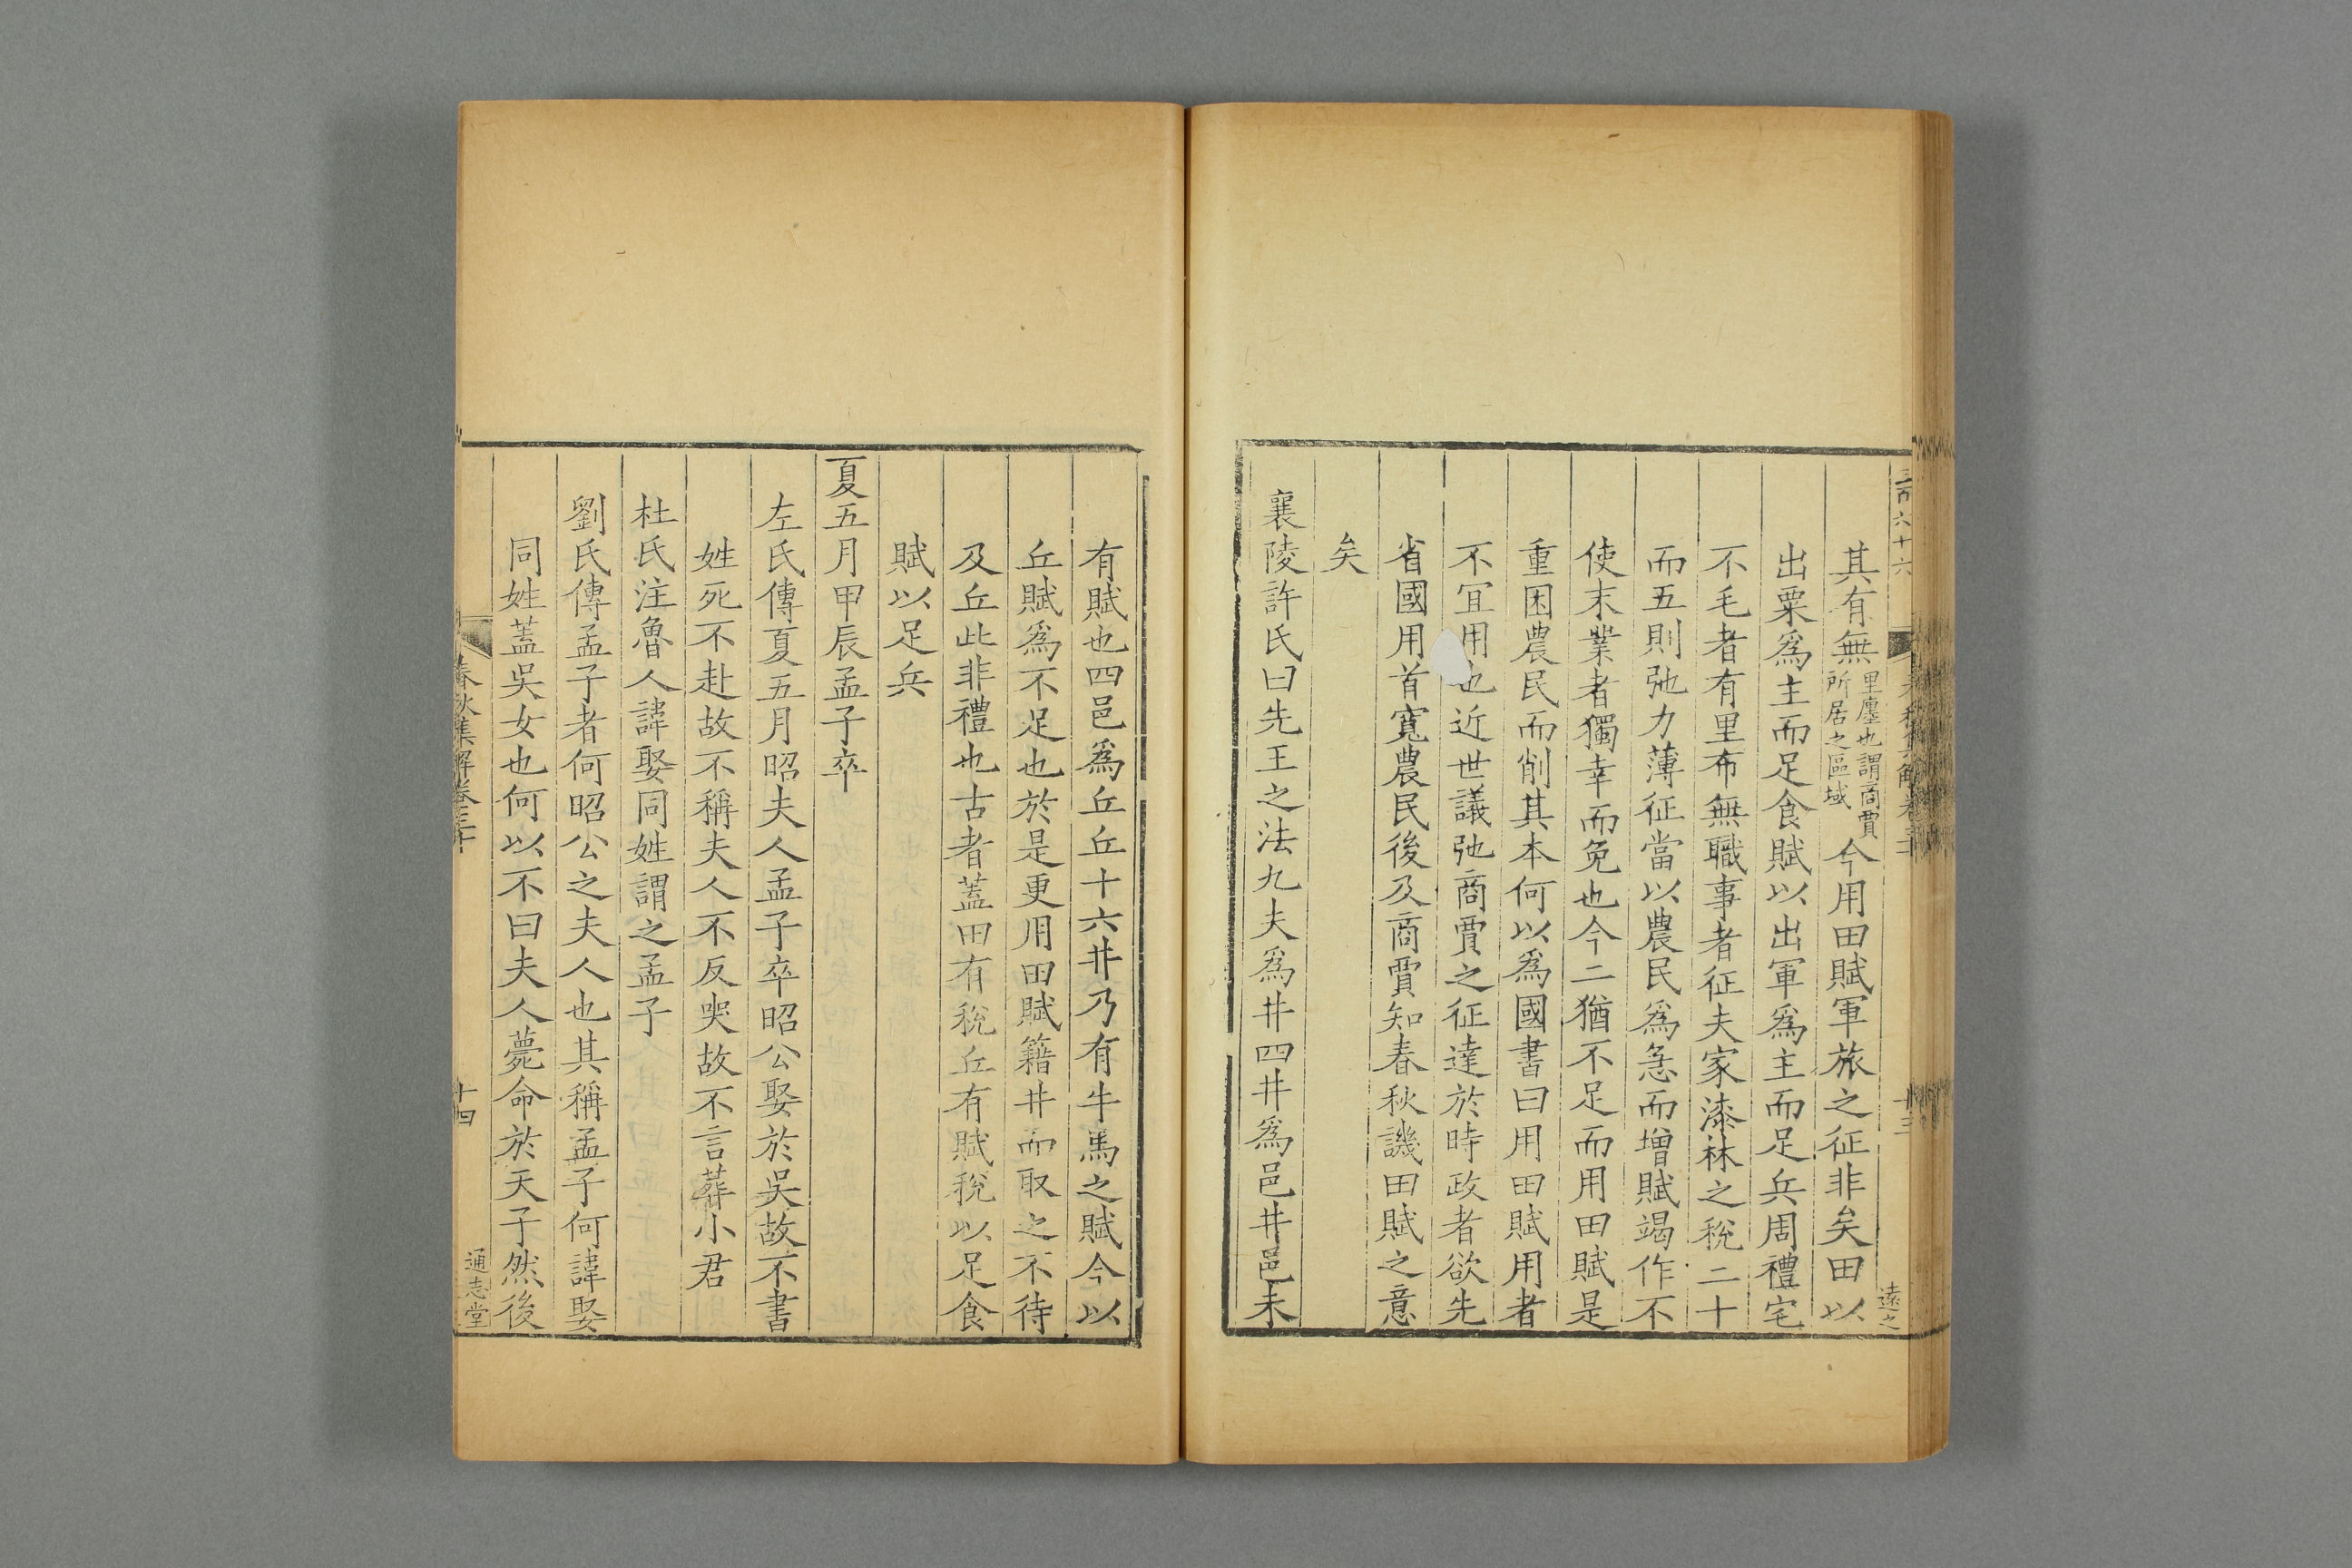 三百六十六
遠之
其有無里廛也謂商賈所居之區域今用田賦軍旅之征非矣田以
出粟爲主而足食賦以出軍爲主而足兵周禮宅
不毛者有里布無職事者征夫家漆林之稅二十
而五則弛力薄征當以農民爲急而增賦竭作不
使末業者獨幸而免也今二猶不足而用田賦是
重困農民而削其本何以爲國書曰用田賦用者
不宜用也近世議弛商賈之征達於時政者欲先
省國用首寬農民後及商賈知春秋譏田賦之意
矣
襄陵許氏曰先王之法九夫爲井四井爲邑井邑未
有賦也四邑爲丘丘十六井乃有牛馬之賦今以
丘賦爲不足也於是更用田賦籍井而取之不待
及丘此非禮也古者蓋田有稅丘有賦稅以足食
賦以足兵
夏五月甲辰孟子卒
左氏傳夏五月昭夫人孟子卒昭公娶於吳故不書
姓死不赴故不稱夫人不反哭故不言葬小君
杜氏注魯人諱娶同姓謂之孟子
劉氏傳孟子者何昭公之夫人也其稱孟子何諱娶
同姓蓋吳女也何以不曰夫人薨命於天子然後
春秋集解卷三十
十四
通志堂